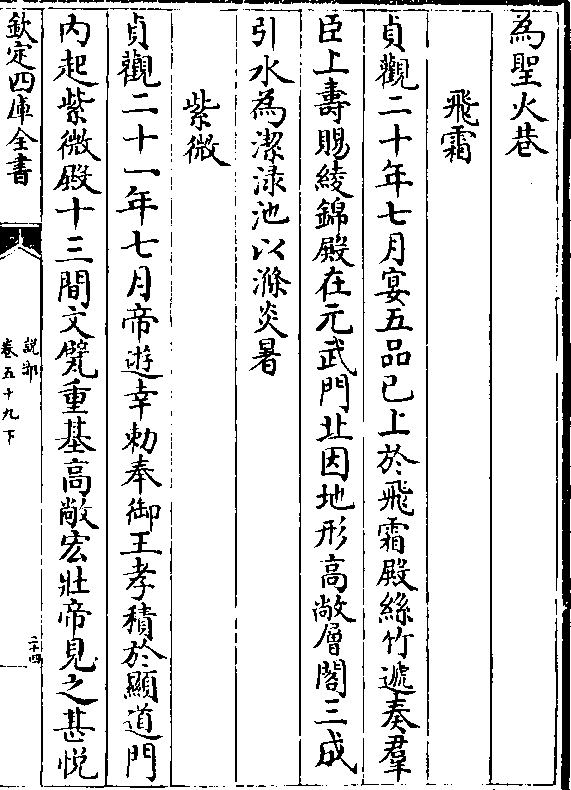 為聖火巷
飛霜
貞觀二十年七月宴五品已上於飛霜殿絲竹遞奏羣
臣上壽賜綾錦殿在元武門北因地形高敞層閣三成
引水為潔渌池以滌炎暑
紫微
貞觀二十一年七月帝遊幸勅奉御王孝積於顯道門
内起紫微殿十三間文甓重基高敞宏壯帝見之甚悦
欽定四庫全書
說郛
卷五十九下
二十四